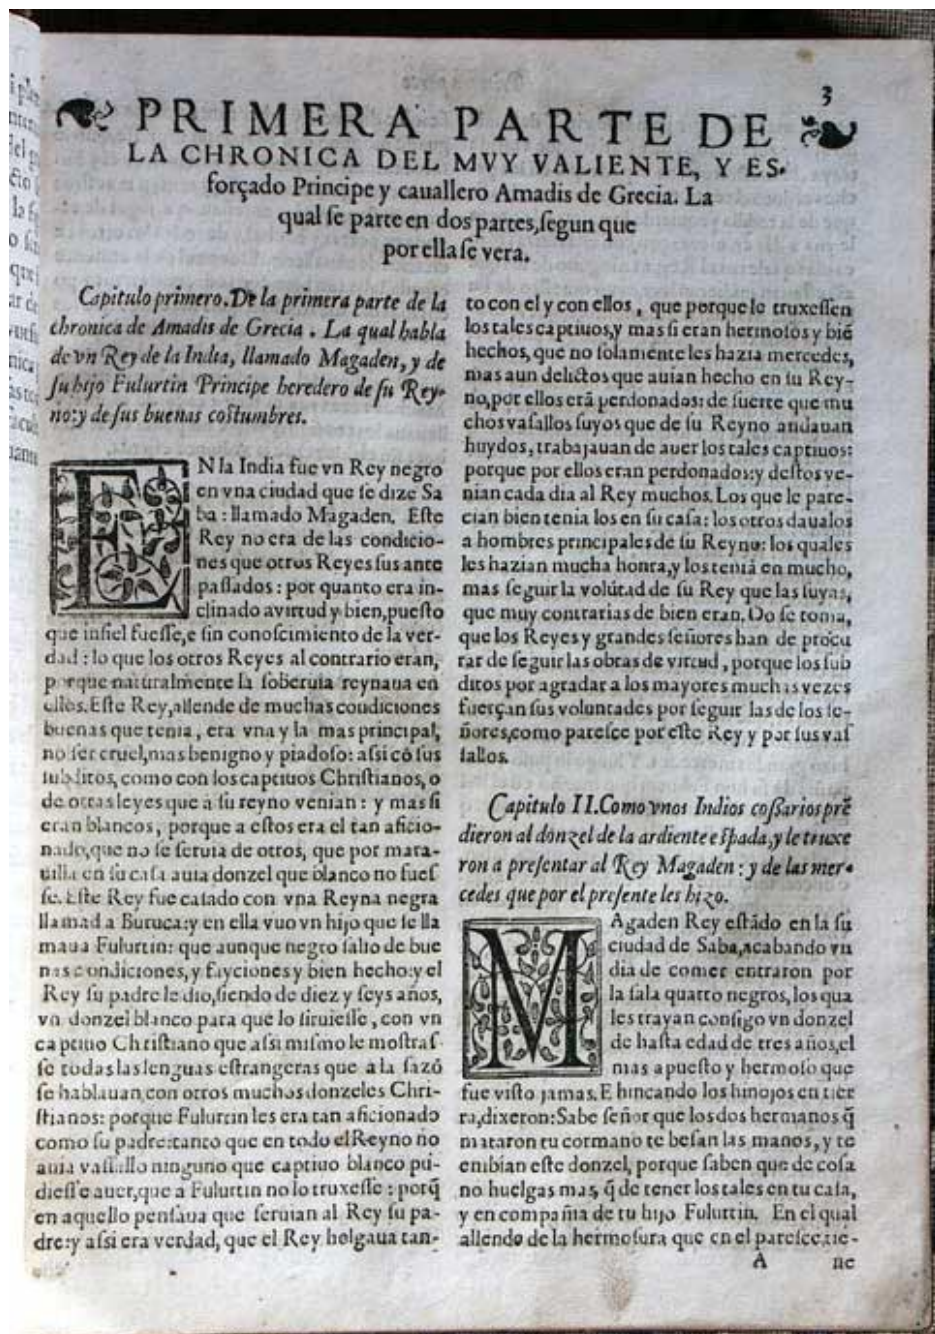 3
PRIMERA PARTE DE
LA CHRONICA DEL MVY VALIENTE, Y ES-
forçado Principe y cauallero Amadis de Grecia. La
qual ſe parte en dos partes, ſegun que
por ella ſe vera.
Capitulo primero. De la primera parte de la
chronica de Amadis de Grecia. La qual habla
de vn Rey de la India, llamado Magaden, y de
ſu hijo Fulurtin Principe heredero de ſu Rey-
no: y de ſus buenas coſtumbres.
EN la India fue vn Rey negro
en vna ciudad que ſe dize Sa
ba: llamado Magaden. Eſte
Rey no era de las condicio-
nes que otros Reyes ſus ante
paſſados: por quanto era in-
clinado a virtud y bien, pueſto
que infiel fueſſe, e ſin conoſcimiento de la ver-
dad: lo que los otros Reyes al contrario eran,
porque naturalmente la ſoberuia reynaua en
ellos. Eſte Rey, allende de muchas condiciones
buenas que tenia, era vna y la mas principal,
no ſer cruel, mas benigno y piadoſo: aſsi cō ſus
ſubditos, como con los captiuos Chriſtianos, o
de otras leyes que a ſu reyno venian: y mas ſi
eran blancos, porque a eſtos era el tan aficio-
nado, que no ſe ſeruia de otros, que por mara-
uilla en ſu caſa auia donzel que blanco no fueſ
ſe. Eſte Rey fue caſado con vna Reyna negra
llamad a Buruca: y en ella vuo vn hijo que ſe lla
maua Fulurtin: que aunque negro ſalio de bue
nas condiciones, y fayciones y bien hecho: y el
Rey ſu padre le dio, ſiendo de diez y ſeys años,
vn donzel blanco para que lo ſiruieſſe, con vn
captiuo Chriſtiano que aſsi miſmo le moſtraſ-
ſe todas las lenguas eſtrangeras que a la ſazō
ſe hablauan, con otros muchos donzeles Chri-
ſtianos: porque Fulurtin les era tan aficionado
como ſu padre: tanto que en todo el Reyno no
auia vaſſallo ninguno que captiuo blanco pu-
dieſſe auer, que a Fulurtin no lo truxeſſe: porq̄
en aquello penſaua que ſeruian al Rey ſu pa-
dre: y aſsi era verdad, que el Rey holgaua tan-
to con el y con ellos, que porque le truxeſſen
los tales captiuos, y mas ſi eran hermoſos y biē
hechos, que no ſolamente les hazia mercedes,
mas aun delictos que auian hecho en ſu Rey-
no, por ellos erā perdonados: de ſuerte que mu
chos vaſallos ſuyos que de ſu Reyno andauan
huydos, trabajauan de auer los tales captiuos:
porque por ellos eran perdonados: y deſtos ve-
nian cada dia al Rey muchos. Los que le pare-
cian bien tenia los en ſu caſa: los otros daualos
a hombres principales de ſu Reyno: los quales
les hazian mucha honra, y los teniā en mucho,
mas ſeguir la volūtad de ſu Rey que las ſuyas,
que muy contrarias de bien eran. Do ſe toma,
que los Reyes y grandes ſeñores han de procu
rar de ſeguir las obras de virtud, porque los ſub
ditos por agradar a los mayores muchas vezes
fuerçan ſus voluntades por ſeguir las de los ſe-
ñores, como pareſce por eſte Rey y por ſus vaſ
ſallos.
Capitulo II. Como vnos Indios coſſarios prē
dieron al donzel de la ardiente eſpada, y le truxe
ron a preſentar al Rey Magaden: y de las mer-
cedes que por el preſente les hizo.
MAgaden Rey eſtādo en la ſu
ciudad de Saba, acabando vn
dia de comer entraron por
la ſala quatro negros, los qua
les trayan conſigo vn donzel
de haſta edad de tres años, el
mas apueſto y hermoſo que
fue viſto jamas. E hincando los hinojos en tier
ra, dixeron: Sabe ſeñor que los dos hermanos q̄
mataron tu cormano te beſan las manos, y te
embian eſte donzel, porque ſaben que de coſa
no huelgas mas, q̄ de tener los tales en tu caſa,
y en compañia de tu hijo Fulurtin. En el qual
allende de la hermoſura que en el pareſce, tie-
A ne